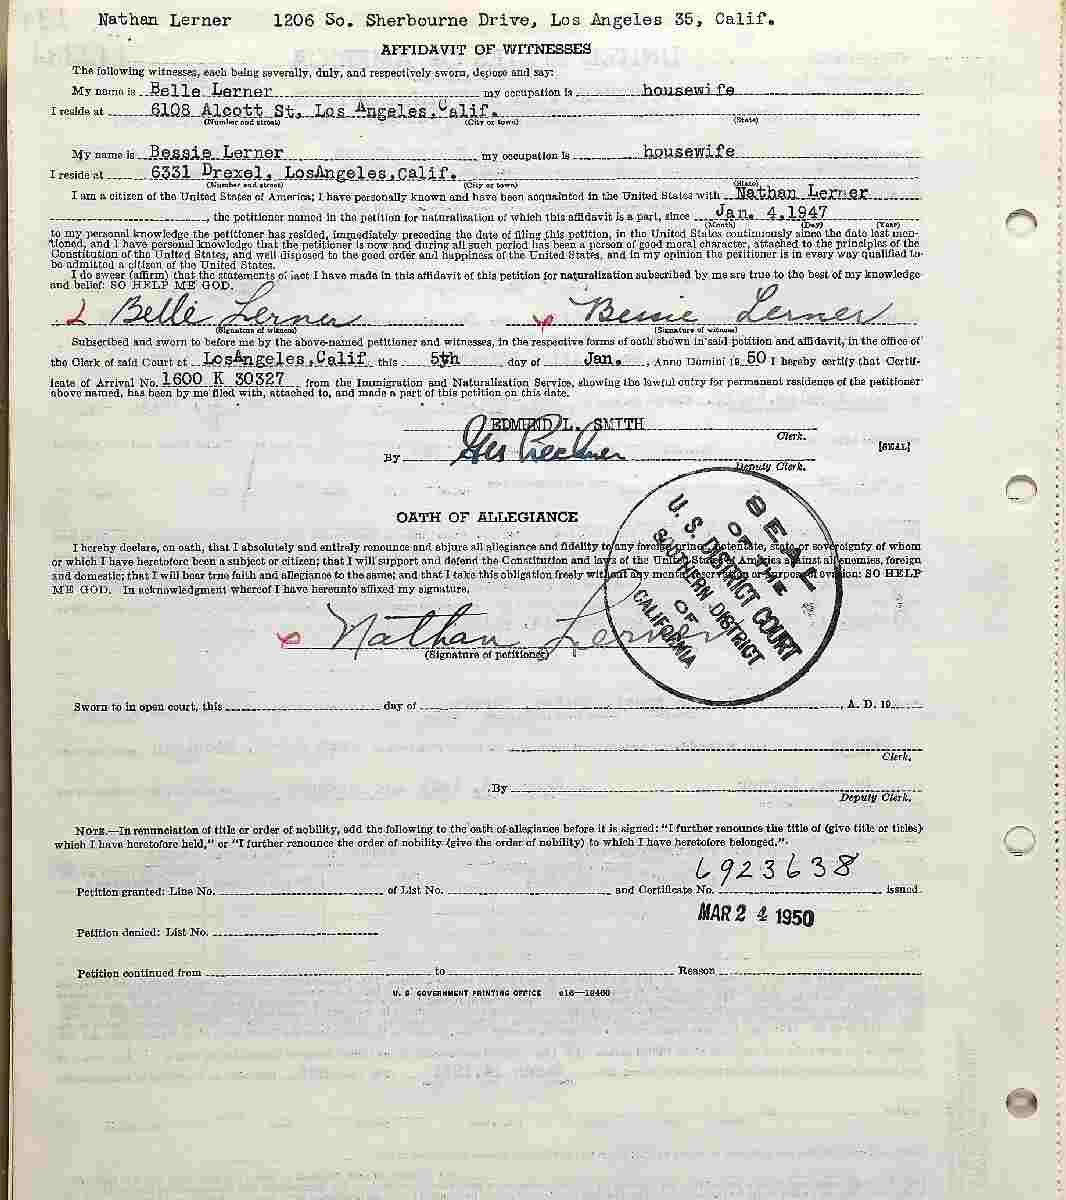 Nathan Lerner 1206 So. Sherbourne Drive, Los Angeles 35, Calif.
AFFIDAVIT OF WITNESSES
The following witnesses, each being severally, duly, and respectively sworn, depose and say:
My name is Belle Lerner my occupation is housewife
I reside at 6108 Alcott St, Los Angeles, Calif.
(Number and street) (City or town) (State)
My name is Bessie Lerner my occupation is housewife
I reside at 6331 Drexel, LosAngeles,Calif.
(Number and street) (City or town) (State)
I am a citizen of the United States of America; I have personally known and have been acquainted in the United States with Nathan Lerner
, the petitioner named in the petition for naturalization of which this affidavit is a part, since Jan. 4,1947
(Month) (Day) (Year)
to my personal knowledge the petitioner has resided, immediately preceding the date of filing this petition, in the United States continuously since the date last men-
tioned, and I have personal knowledge that the petitioner is now and during all such period has been a person of good moral character, attached to the principles of the
Constitution of the United States, and well disposed to the good order and happiness of the United States, and in my opinion the petitioner is in every way qualified to
be admitted a citizen of the United States.
I do swear (affirm) that the statements of fact I have made in this affidavit of this petition for naturalization subscribed by me are true to the best of my knowledge
and belief: SO HELP ME GOD.
Belle Lerner Bessie Lerner
(Signature of witness) (Signature of witness)
Subscribed and sworn to before me by the above-named petitioner and witnesses, in the respective forms of oath shown in said petition and affidavit, in the office of
the Clerk of said Court at LosAngeles,Calif this 5th day of Jan. , Anno Domini 19 50 I hereby certify that Certif-
icate of Arrival No. 1600 K 30327 from the Immigration and Naturalization Service, showing the lawful entry for permanent residence of the petitioner
above named, has been by me filed with, attached to, and made a part of this petition on this date.
EDMUND L. SMITH
Clerk.
[SEAL]
By
Deputy Clerk.
SEAL
OF THE
U. S. DISTRICT COURT
SOUTHERN DISTRICT
OF
CALIFORNIA
OATH OF ALLEGIANCE
I hereby declare, on oath, that I absolutely and entirely renounce and abjure all allegiance and fidelity to any foreign prince, potentate, state, or sovereignty of whom
or which I have heretofore been a subject or citizen; that I will support and defend the Constitution and laws of the United States of America against all enemies, foreign
and domestic; that I will bear true faith and allegiance to the same; and that I take this obligation freely without any mental reservation or purpose of evasion: SO HELP
ME GOD. In acknowledgment whereof I have hereunto affixed my signature.
Nathan Lerner
(Signature of petitioner)
Sworn to in open court, this day of , A. D. 19
Clerk.
By
Deputy Clerk.
NOTE.—In renunciation of title or order of nobility, add the following to the oath of allegiance before it is signed: "I further renounce the title of (give title or titles)
which I have heretofore held," or "I further renounce the order of nobility (give the order of nobility) to which I have heretofore belonged.".
6923638
Petition granted: Line No. of List No. and Certificate No. issued.
MAR 24 1950
Petition denied: List No.
Petition continued from to Reason
U. S. GOVERNMENT PRINTING OFFICE c16—18460